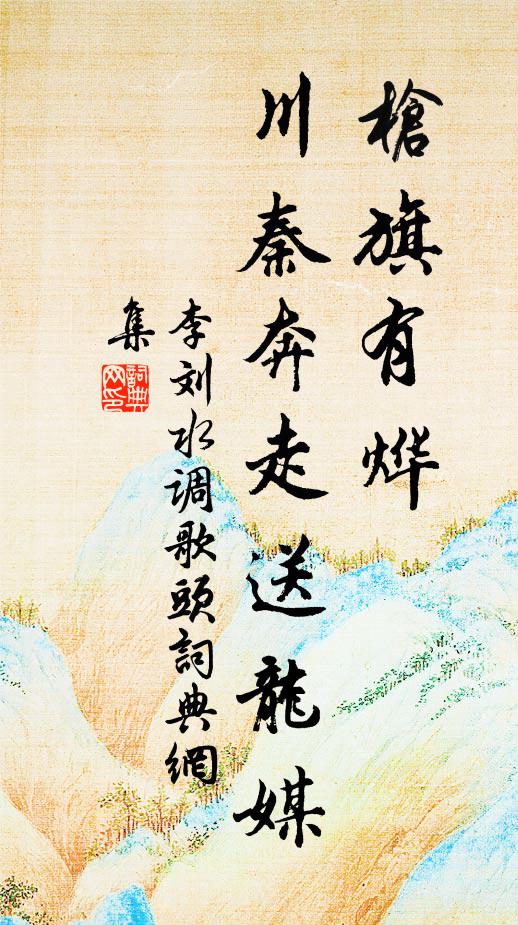 槍旗有烨
川秦奔走送龍媒
李刘水调歌頭詞典網
集
詞典網印